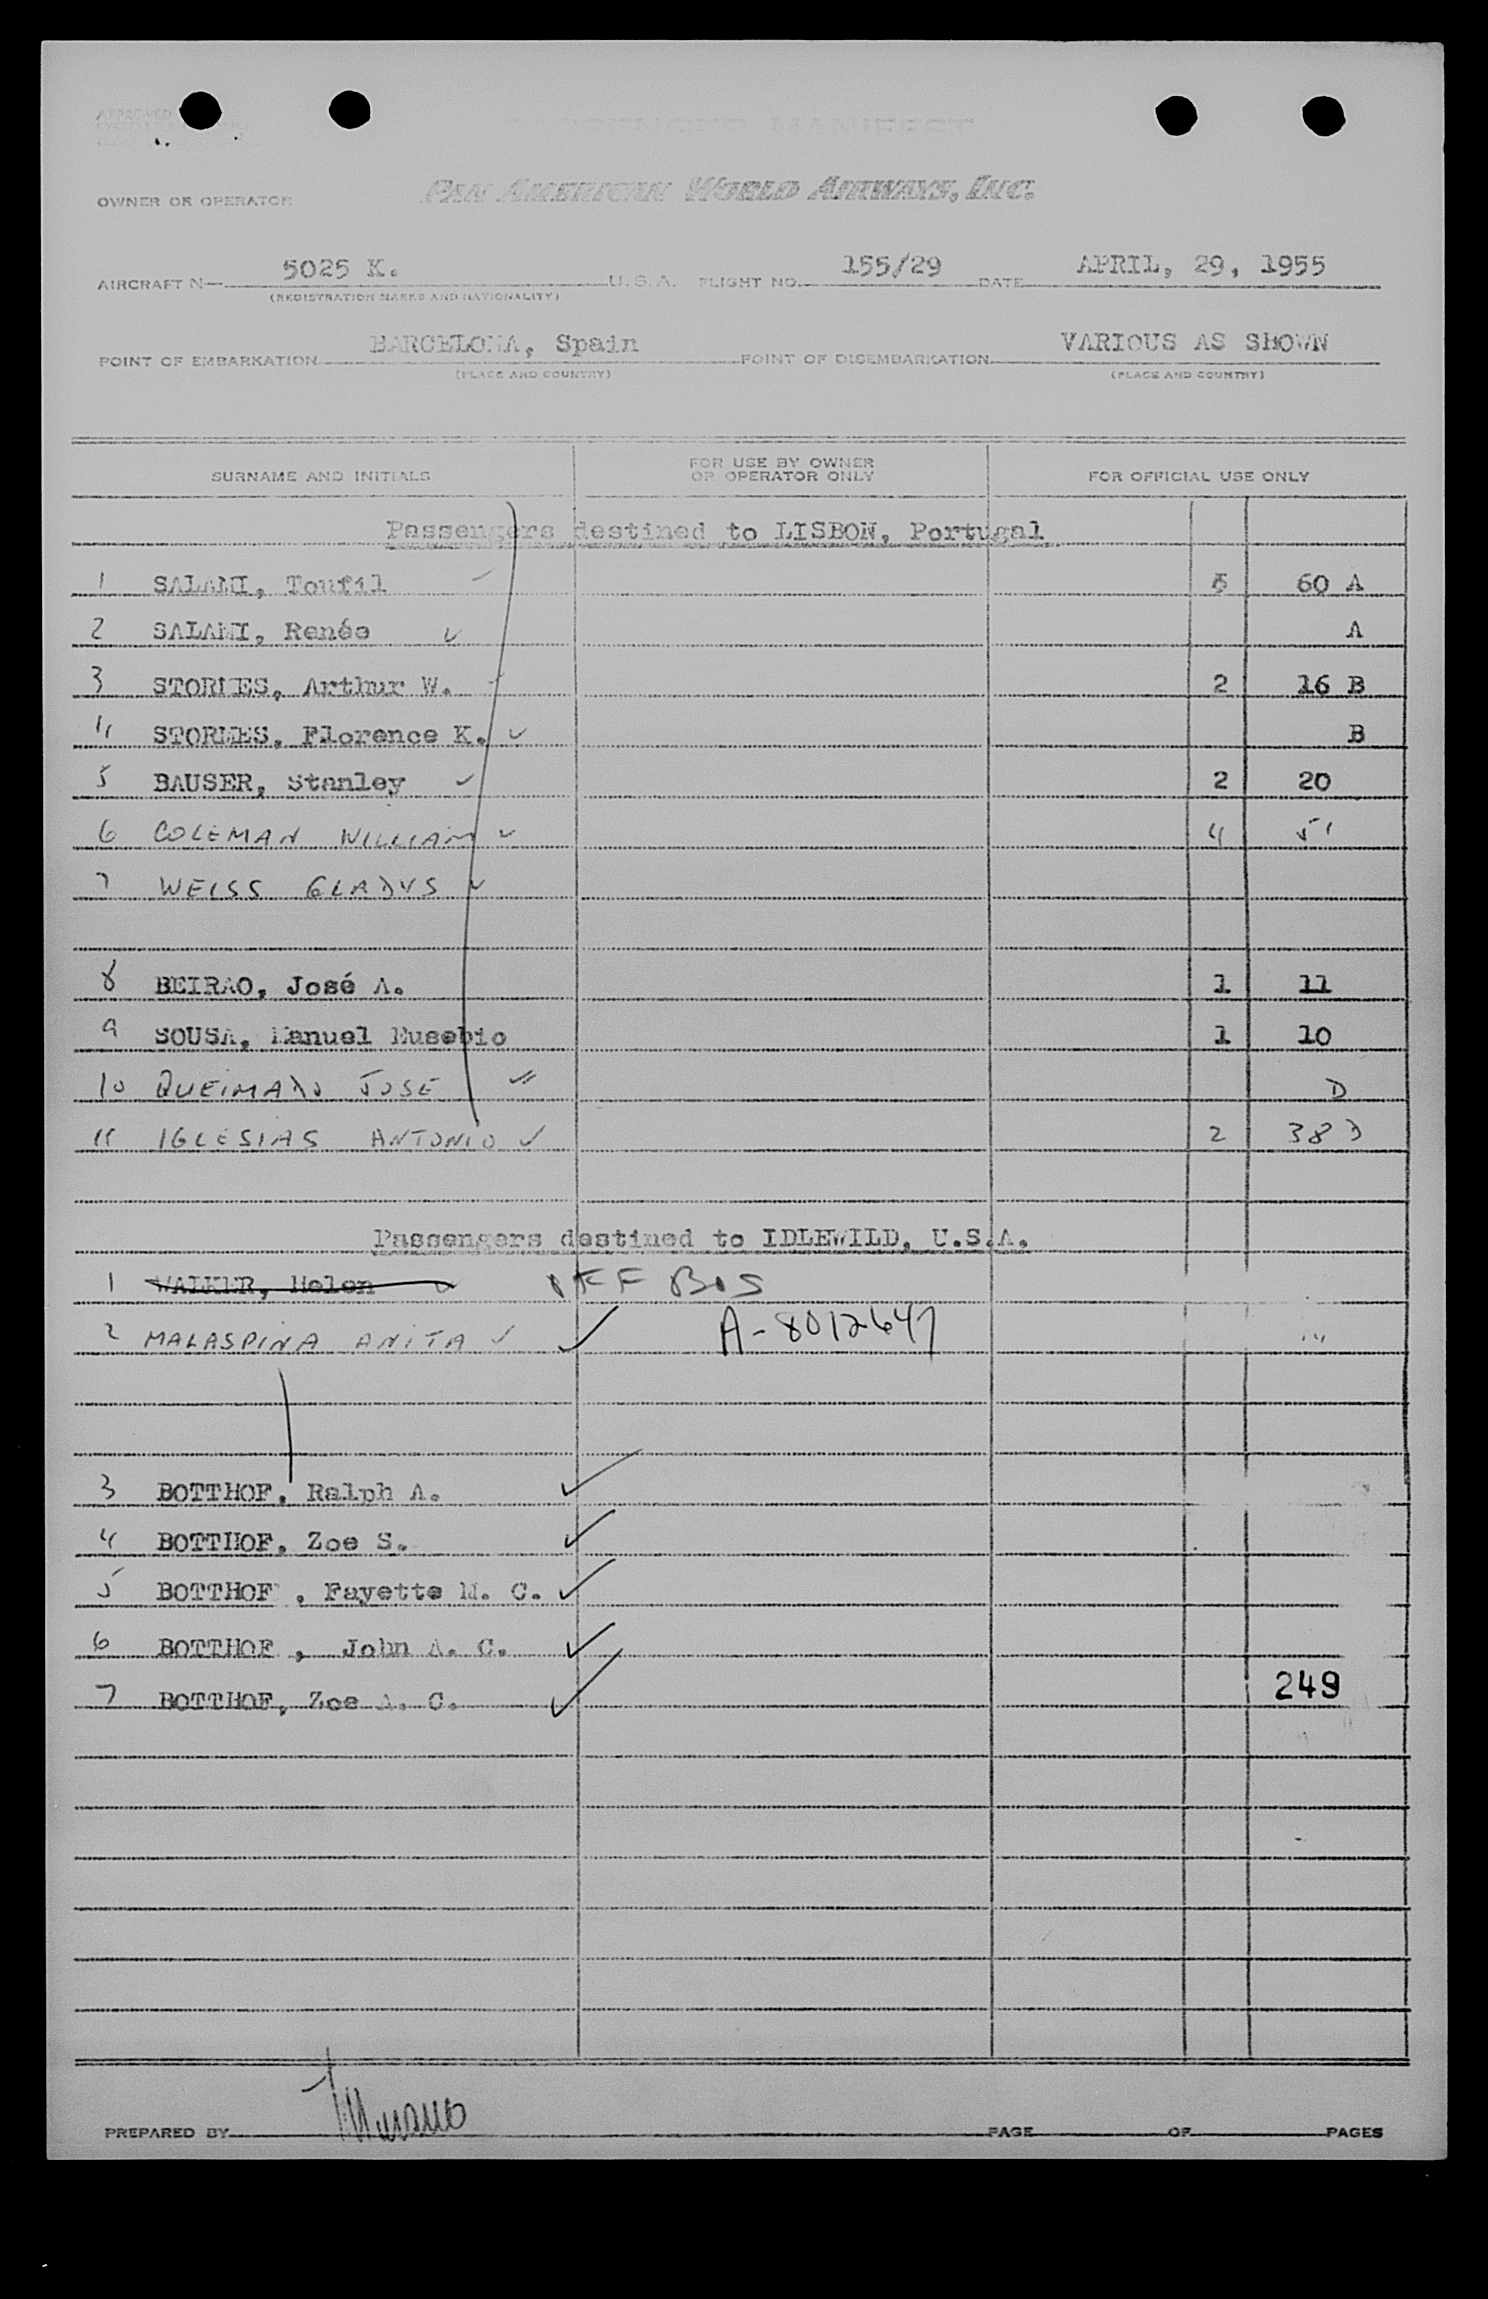 APPROVED
PASSENGER MANIFEST
OWNER OR OPERATOR PAN AMERICAN WORLD AIRWAYS, INC.
AIRCRAFT N— 5025 K. U. S. A. FLIGHT NO. 155/29 DATE APRIL, 29, 1955
(REGISTRATION MARKS AND NATIONALITY)
POINT OF EMBARKATION BARCELONA, Spain POINT OF DISEMBARKATION VARIOUS AS SHOWN
(PLACE AND COUNTRY) (PLACE AND COUNTRY)
SURNAME AND INITIALS FOR USE BY OWNER OR OPERATOR ONLY FOR OFFICIAL USE ONLY
Passengers destined to LISBON, Portugal
1 SALAMI, Toufil 5 60 A
2 SALAMI, Renée A
3 STORMES, Arthur W. 2 16 B
4 STORMES, Florence K. B
5 BAUSER, Stanley 2 20
6 COLEMAN WILLIAM 4 51
7 WEISS GLADYS
8 BEIRAO, José A. 1 11
9 SOUSA, Manuel Eusebio 1 10
10 QUEIMADO JOSE D
11 IGLESIAS ANTONIO 2 38 D
Passengers destined to IDLEWILD, U.S.A.
1 WALKER, Helen OFF BOS
2 MALASPINA ANITA A-8012647
3 BOTTHOF, Ralph A.
4 BOTTHOF, Zoe S.
5 BOTTHOF , Fayette M. C.
6 BOTTHOF , John A. C.
7 BOTTHOF, Zoe A. C. 249
PREPARED BY PAGE OF PAGES